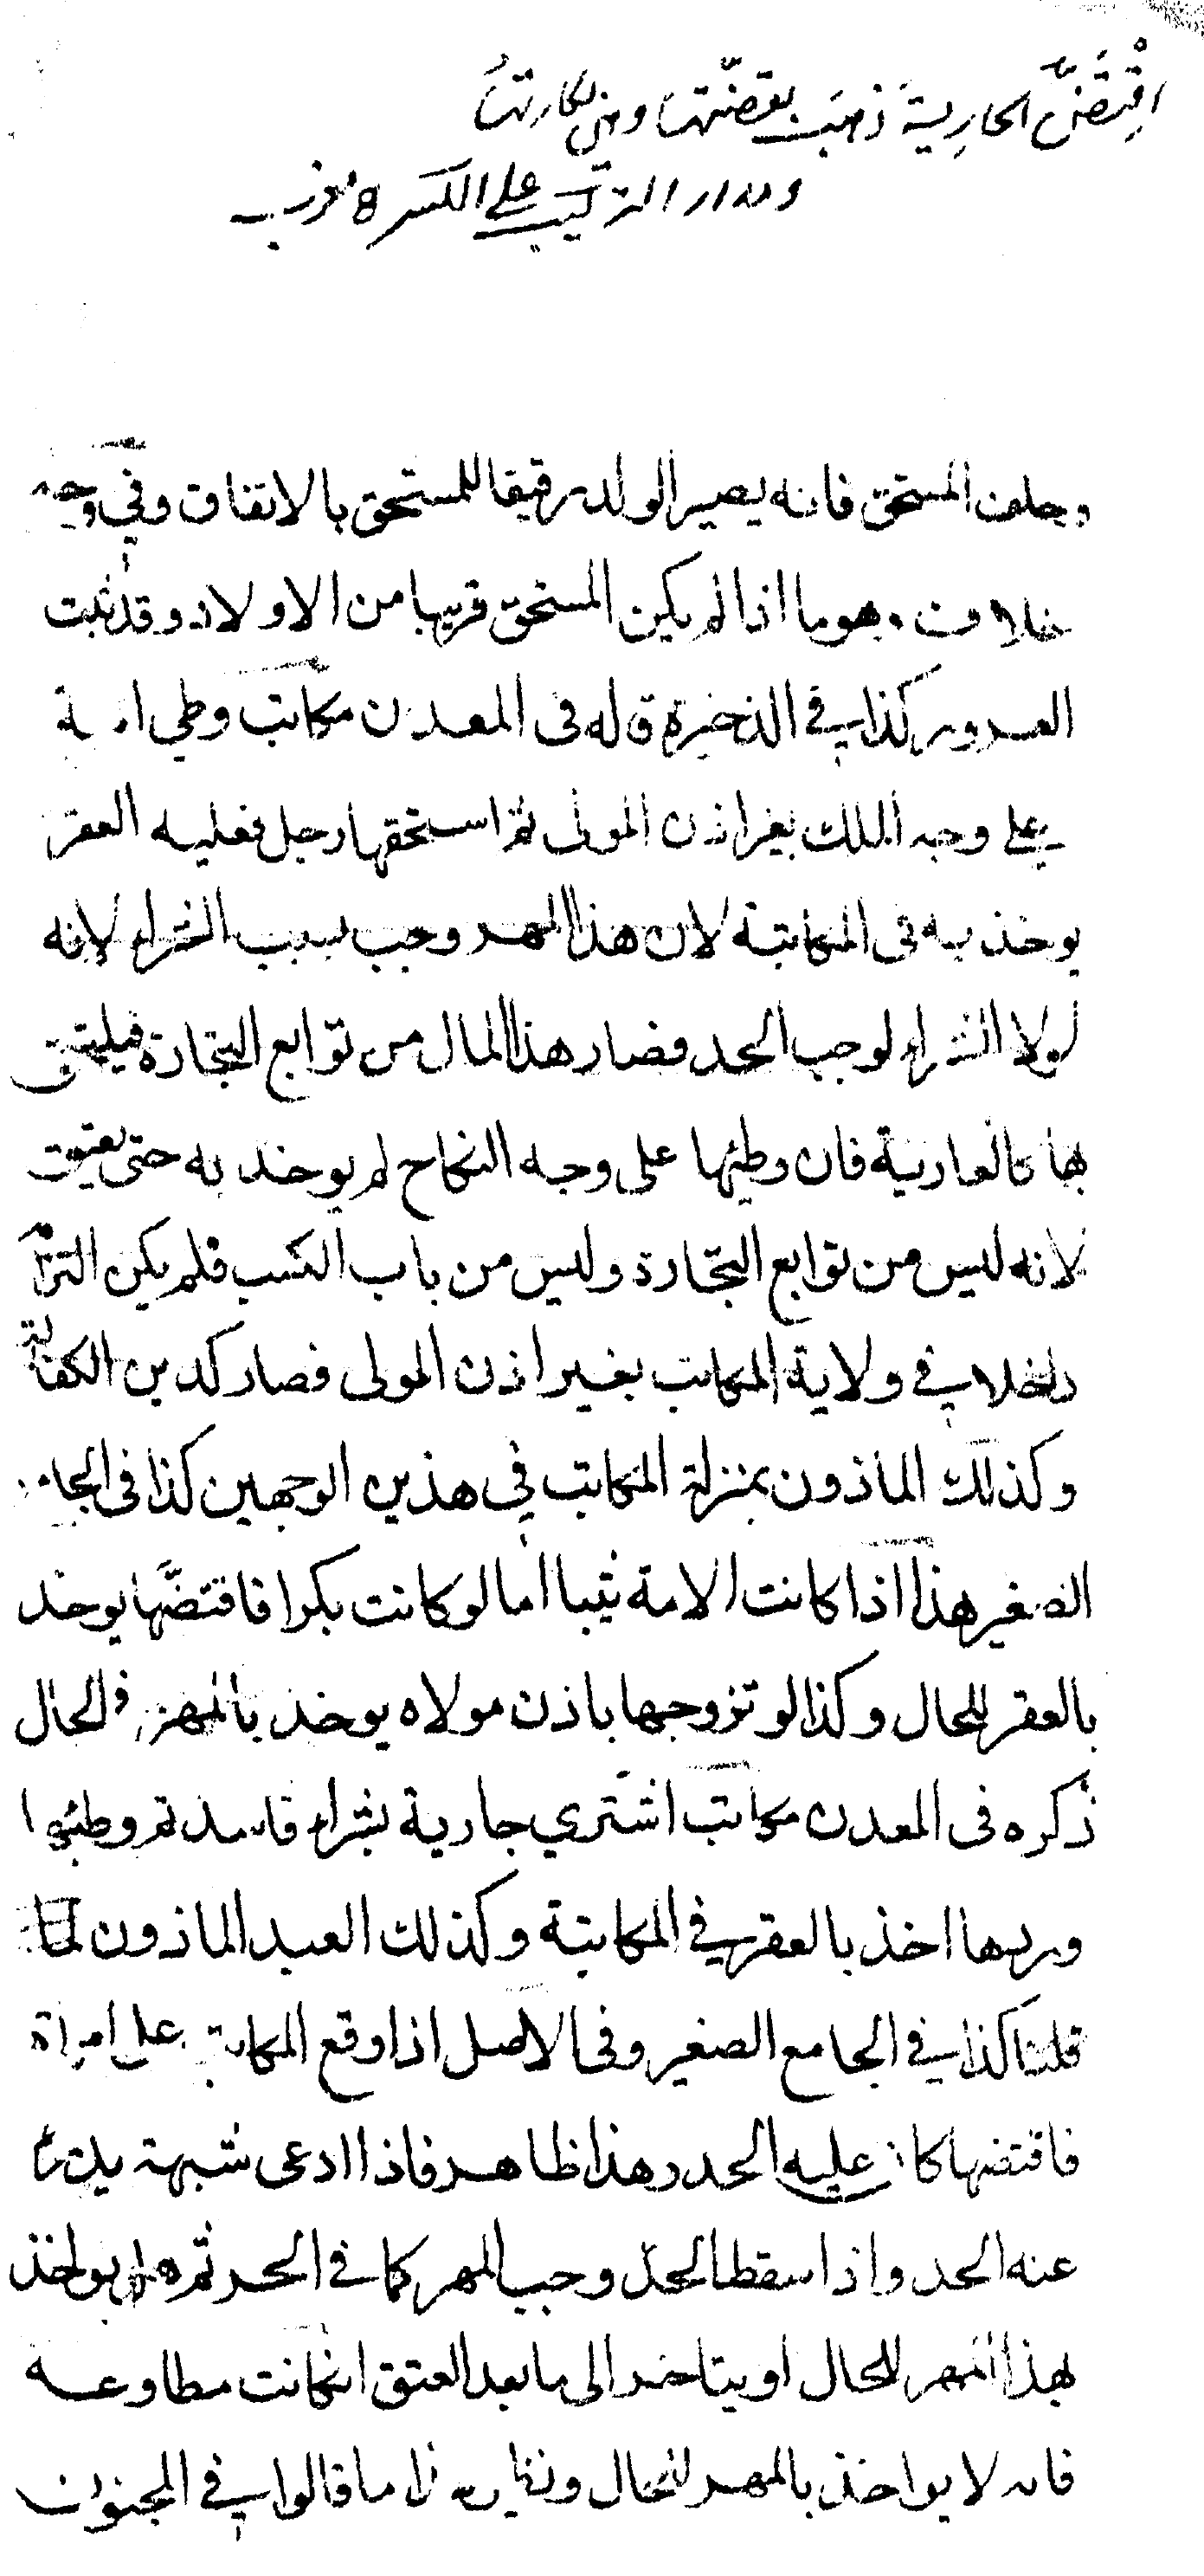 اقتضّ الجارية ذهب بقضتها وهي بكارتها
ومدار التركيب على الكسر مغرب
وحلف المستحق فانه يصير الولد رقيقا للمستحق بالاتفاق وفي وجه
خلاف وهوما اذا لم يكن المستحق قريبا من الاولاد وقد ثبت
الغرور كذا في الذخيرة قاله فى المعدن مكاتب وطي امة
على وجه الملك بغير اذن المولى ثم استحقها رجل فعليه العقر
يوخذ به فى المكاتبة لان هذا المهر وجب بسبب الشراء لانه
لولا الشراء لوجب الحد فصار هذا المال من توابع التجارة فيلتحق
بها كالعارية فان وطئها على وجه النكاح لم يوخذ به حتى يعتق
لانه ليس من توابع التجارة وليس من باب الكسب فلم يكن التزا
داخلا في ولاية المكاتب بغير اذن المولى فصار كدين الكفالة
وكذلك الماذون بمنزلة المكاتب في هذين الوجهين كذا فى الجامع
الصغير هذا اذا كانت الامة ثيبا اما لو كانت بكرا فاقتضّها يوخذ
بالعقر للحال وكذا لو تزوجها باذن مولاه يوخذ بالمهر فى الحال
ذكره فى المعدن مكاتب اشتري جارية بشراء فاسد ثم وطئها
وردها اخذ بالعقر في المكاتبة وكذلك العبد الماذون لما
قلنا كذا في الجامع الصغير وفى الاصل اذا وقع المكاتب على امراة
فاقتضها كان عليه الحد وهذا ظاهر فاذا ادعى شبهة يدرا
عنه الحد واذا سقط الحد وجب المهر كما في الحر ثم هل يواخذ
بهذا المهر للحال او يتاخر الى ما بعد العتق ان كانت مطاوعه
فانه لا يواخذ بالمهر للحال ما قالوا في المجنون